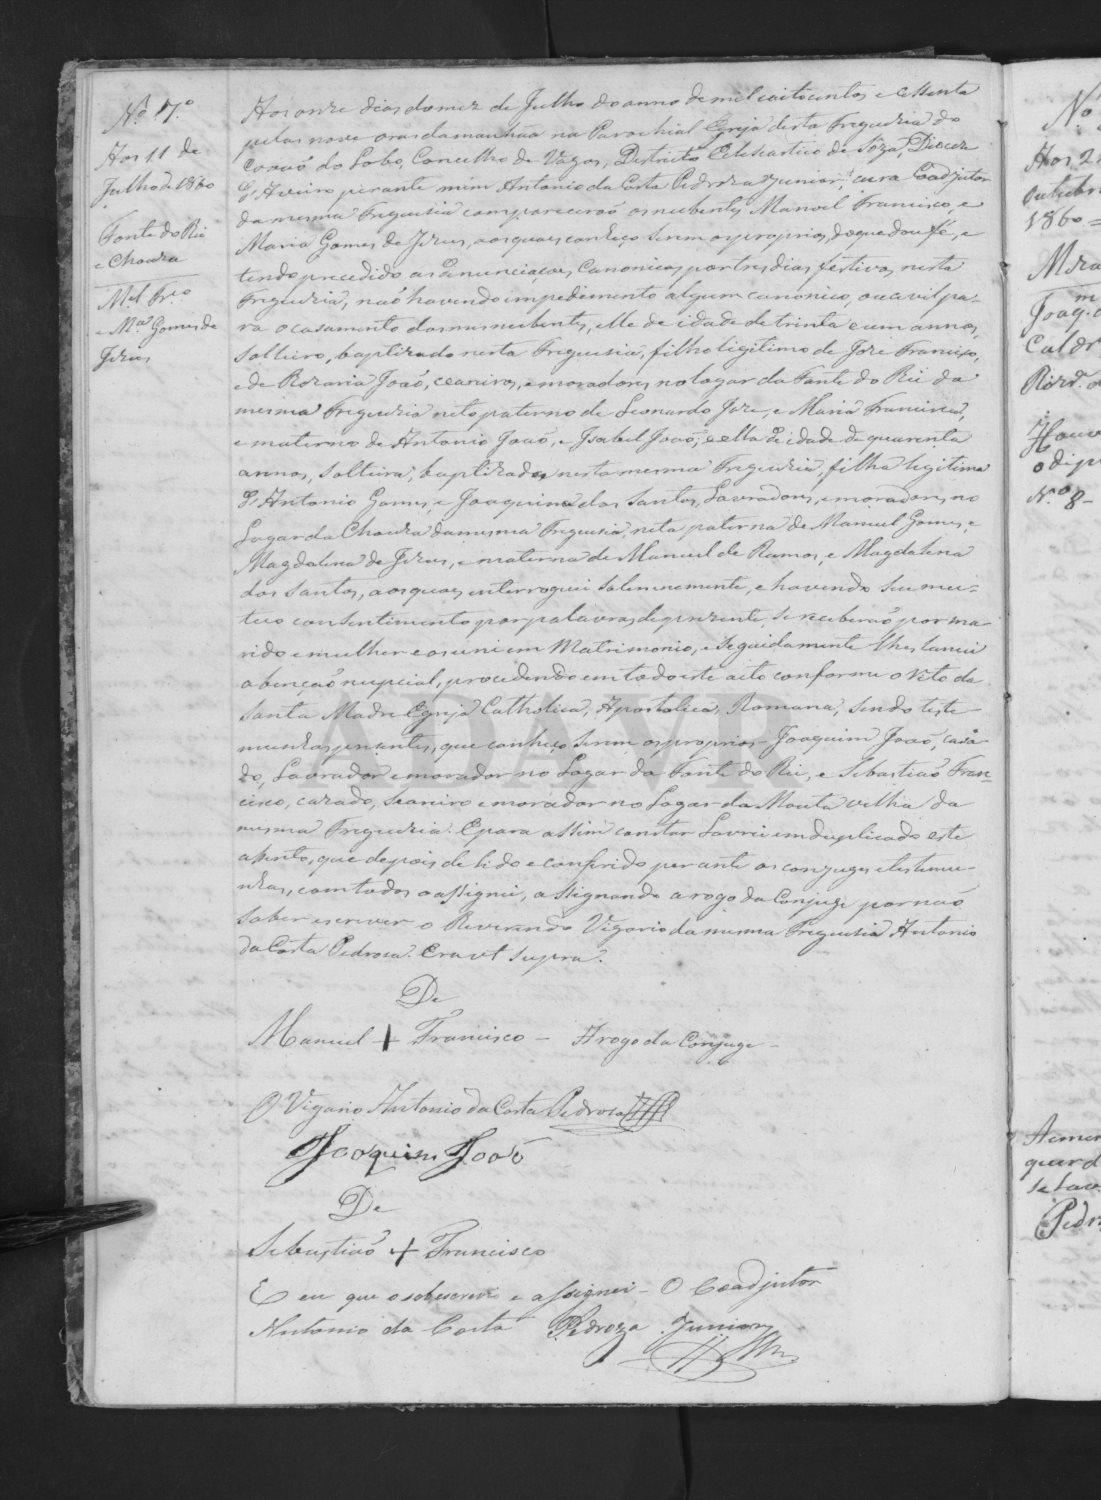 Nº 7º
Aos 11 de
Julho de 1860
Fonte do Rei
e Choura
Mel Frco
e Mª Gomes de
Jezus
Aos onze dias do mez de Julho do anno de mil oito centos e cessenta
pelas nove oras da manhãa na Parochial Egreja desta Freguezia do
Covão do Lobo, Concelho de Vagos, Districto Eclesiastico de Soza, Diocese
d'Aveiro perante mim Antonio da Costa Pedroza Junior, cura Coadjutor
da mesma Freguesia comparecerão os nubentes Manoel Francisco, e
Maria Gomes de Jezus, aos quaes conheço serem os proprios, do que dou fé, e
tendo precedido as Denunciaçoes Canonicas por tres dias festivos nesta
Freguezia, não havendo impedimento algum canonico, ou civil pa-
ra o casamento dos mesmos nubentes, elle de idade de trinta e um annos,
solteiro, baptizado nesta Freguesia, filho ligitimo de Joze Francisco,
e de Rozaria João, ceareiros, e moradores no logar da Fonte do Rei da
mesma Freguezia neto paterno de Leonardo Joze, e Maria Francisca,
e materno de Antonio João, e Izabel João; e ella de idade de quarenta
annos, solteira, baptizada nesta mesma Freguezia, filha ligitima
d'Antonio Gomes, e Joaquina dos Santos, Lavradores, e moradores no
Logar da Choura da mesma Freguesia, neta paterna de Manuel Gomes, e
Magdalena de Jezus, e materna de Manuel de Ramos, e Magdalena
dos Santos, aos quaes interroguei solennemente, e havendo seu mu-
tuo consentimento por palavras de prezente, se receberão por ma-
rido e mulher e os uni em Matrimonio, e seguidamente lhes lancei
a benção nupcial, procedendo em todo este acto conforme o rito da
Santa Madre Egreja Catholica, Apostolica, Romana, sendo teste-
munhas prezentes, que conheço serem os proprios - Joaquim João, casa
do, Lavrador e morador no Logar da Fonte do Rei, e Sebastião Fran-
cisco, cazado, Seareiro e morador no Logar da Mouta velha da
mesma Freguezia. E para assim constar Lavrei em duplicado este
assento, que depois de lido e conferido perante os conjuges e testemu-
nhas, com todos o assignei, assignando a rogo da Conjuge por não
saber escrever o Reverendo Vigario da mesma Freguesia Antonio
da Costa Pedroza. Era ut supra.
De
Manuel + Francisco - A rogo da Conjuge -
O Vigario Antonio da Costa Pedroza
Joaquim João
De
Sebastião + Francisco
E eu que o sobescrevi e assignei - O Coadjutor
Antonio da Costa Pedroza Junior
Nº
Aos 2
outubro
1860 =
Mira
Joaqm
Calor
Nº 8-
ADAVR